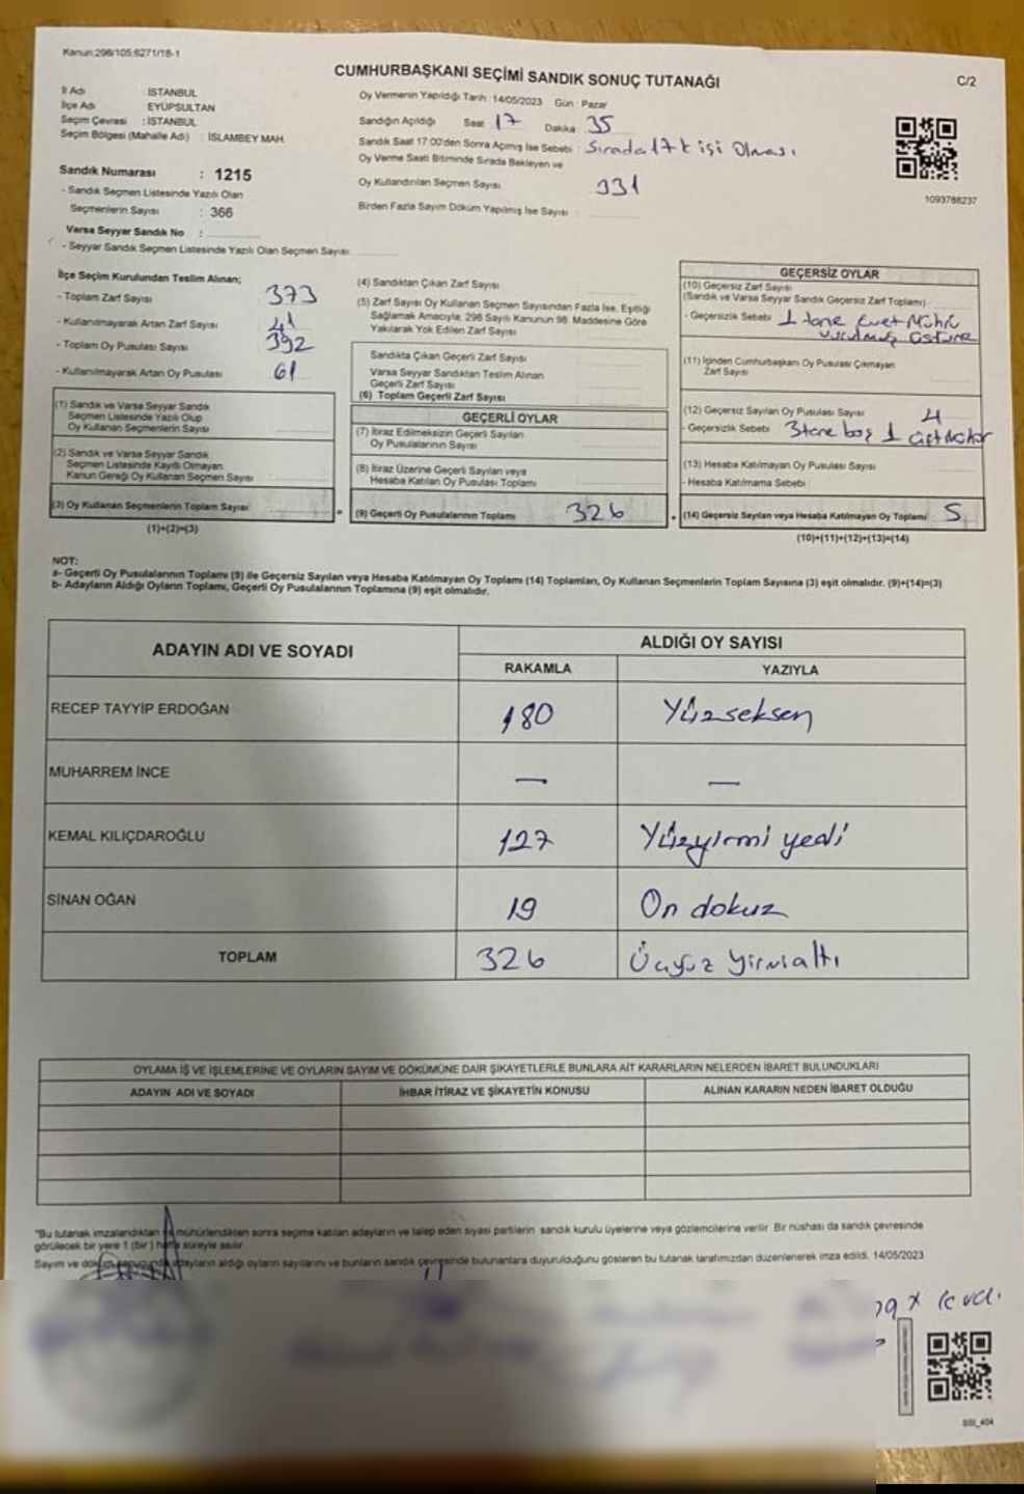 Kanun:298/105;6271/18-1
CUMHURBAŞKANI SEÇİMİ SANDIK SONUÇ TUTANAĞI
C/2
İl Adı : İSTANBUL
İlçe Adı : EYÜPSULTAN
Seçim Çevresi : İSTANBUL
Seçim Bölgesi (Mahalle Adı) : İSLAMBEY MAH.
Oy Vermenin Yapıldığı Tarih : 14/05/2023 Gün : Pazar
Sandığın Açıldığı Saat 17 Dakika 35
Sandık Saat 17:00'den Sonra Açmış İse Sebebi : Sırada 17 kişi Olması.
Oy Verme Saati Bitiminde Sırada Bekleyen ve
Oy Kullandırılan Seçmen Sayısı 331
Birden Fazla Sayım Döküm Yapılmış İse Sayısı :
1093788237
Sandık Numarası : 1215
- Sandık Seçmen Listesinde Yazılı Olan
Seçmenlerin Sayısı : 366
Varsa Seyyar Sandık No :
- Seyyar Sandık Seçmen Listesinde Yazılı Olan Seçmen Sayısı
İlçe Seçim Kurulundan Teslim Alınan;
- Toplam Zarf Sayısı 373
- Kullanılmayarak Artan Zarf Sayısı 41
- Toplam Oy Pusulası Sayısı 392
- Kullanılmayarak Artan Oy Pusulası 61
(1) Sandık ve Varsa Seyyar Sandık
Seçmen Listesinde Yazılı Olup
Oy Kullanan Seçmenlerin Sayısı
(2) Sandık ve Varsa Seyyar Sandık
Seçmen Listesinde Kayıtlı Olmayan
Kanun Gereği Oy Kullanan Seçmen Sayısı
(3) Oy Kullanan Seçmenlerin Toplam Sayısı
(1)+(2)=(3)
(4) Sandıktan Çıkan Zarf Sayısı
(5) Zarf Sayısı Oy Kullanan Seçmen Sayısından Fazla İse, Eşitliği
Sağlamak Amacıyla, 298 Sayılı Kanunun 98. Maddesine Göre
Yakılarak Yok Edilen Zarf Sayısı
Sandıkta Çıkan Geçerli Zarf Sayısı
Varsa Seyyar Sandıktan Teslim Alınan
Geçerli Zarf Sayısı
(6) Toplam Geçerli Zarf Sayısı
GEÇERLİ OYLAR
(7) İtiraz Edilmeksizin Geçerli Sayılan
Oy Pusulalarının Sayısı
(8) İtiraz Üzerine Geçerli Sayılan veya
Hesaba Katılan Oy Pusulası Toplamı
(9) Geçerli Oy Pusulalarının Toplamı 326
GEÇERSİZ OYLAR
(10) Geçersiz Zarf Sayısı
(Sandık ve Varsa Seyyar Sandık Geçersiz Zarf Toplamı)
- Geçersizlik Sebebi 1 tane Evet Mührü
vurulmuş üstüne
(11) İçinden Cumhurbaşkanı Oy Pusulası Çıkmayan
Zarf Sayısı
(12) Geçersiz Sayılan Oy Pusulası Sayısı 4
- Geçersizlik Sebebi 3 tane boş 1
(13) Hesaba Katılmayan Oy Pusulası Sayısı
- Hesaba Katılmama Sebebi
(14) Geçersiz Sayılan veya Hesaba Katılmayan Oy Toplamı 5
(10)+(11)+(12)+(13)=(14)
NOT:
a- Geçerli Oy Pusulalarının Toplamı (9) ile Geçersiz Sayılan veya Hesaba Katılmayan Oy Toplamı (14) Toplamları, Oy Kullanan Seçmenlerin Toplam Sayısına (3) eşit olmalıdır. (9)+(14)=(3)
b- Adayların Aldığı Oyların Toplamı, Geçerli Oy Pusulalarının Toplamına (9) eşit olmalıdır.
ADAYIN ADI VE SOYADI
ALDIĞI OY SAYISI
RAKAMLA YAZIYLA
RECEP TAYYİP ERDOĞAN 180 Yüzseksen
MUHARREM İNCE — —
KEMAL KILIÇDAROĞLU 127 Yüzyirmi yedi
SİNAN OĞAN 19 On dokuz
TOPLAM 326 Üçyüz yirmialtı
OYLAMA İŞ VE İŞLEMLERİNE VE OYLARIN SAYIM VE DÖKÜMÜNE DAİR ŞİKAYETLERLE BUNLARA AİT KARARLARIN NELERDEN İBARET BULUNDUKLARI
ADAYIN ADI VE SOYADI İHBAR İTİRAZ VE ŞİKAYETİN KONUSU ALINAN KARARIN NEDEN İBARET OLDUĞU
"Bu tutanak imzalandıktan mühürlendikten sonra seçime katılan adayların ve talep eden siyasi partilerin sandık kurulu üyelerine veya gözlemcilerine verilir. Bir nüshası da sandık çevresinde
görülecek bir yere 1 (bir) hafta süreyle asılır.
Sayım ve adayların aldığı oyların sayılarını ve bunların sandık çevresinde bulunanlara duyurulduğunu gösteren bu tutanak tarafımızdan düzenlenerek imza edildi. 14/05/2023